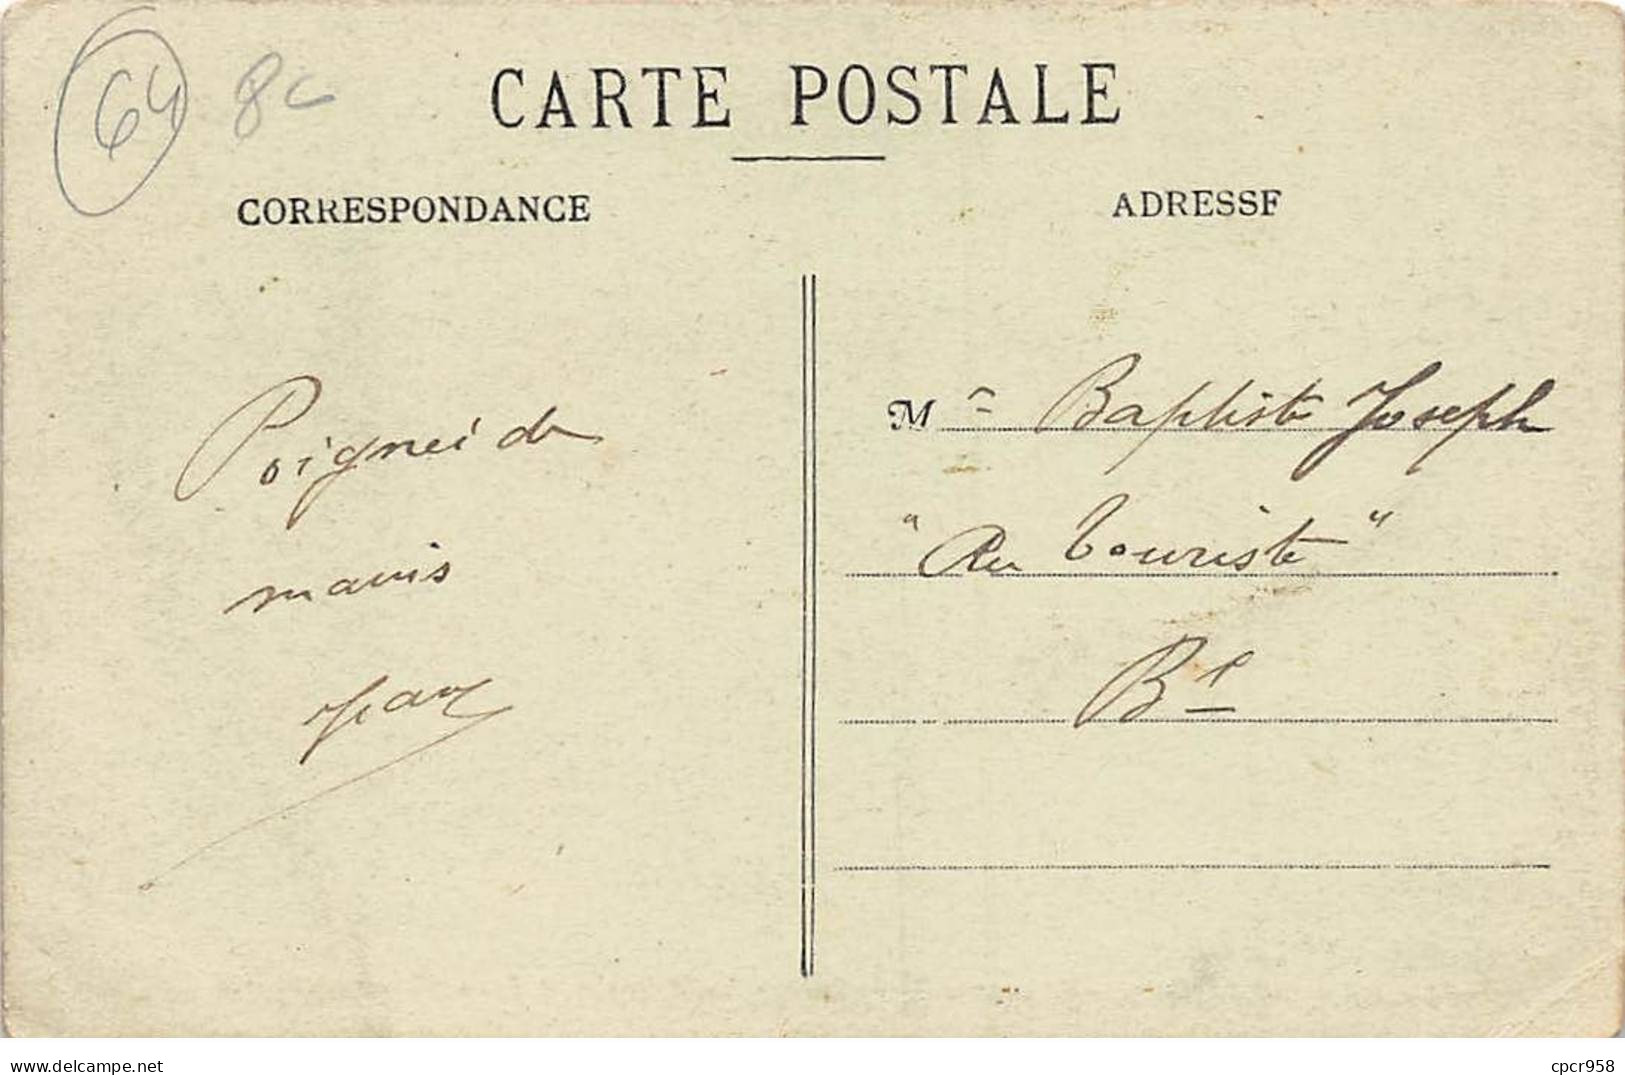 64 8c
CARTE POSTALE
CORRESPONDANCE
ADRESSE
Poigneé de
mains
Mr Baptiste Joseph
"Au Touriste"
Bd
www.delcampe.net
cpcr958